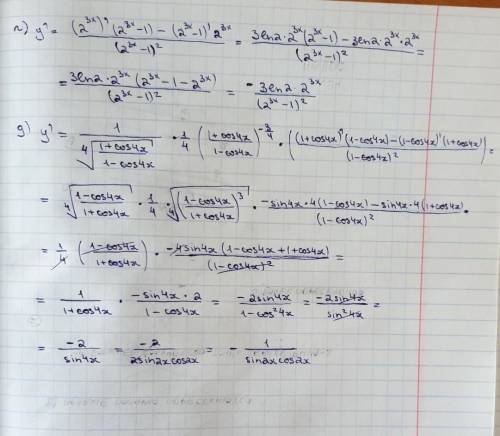 г) y' = ((2^{3x})' (2^{3x}-1) - (2^{3x}-1)' 2^{3x}) / (2^{3x}-1)^2 = (3ln2·2^{3x}(2^{3x}-1) - 3ln2·2^{3x}·2^{3x}) / (2^{3x}-1)^2 =
= (3ln2·2^{3x}(2^{3x}-1-2^{3x})) / (2^{3x}-1)^2 = - (3ln2·2^{3x}) / (2^{3x}-1)^2
g) y' = 1 / ∜((1+cos4x)/(1-cos4x)) · 1/4 ((1+cos4x)/(1-cos4x))^{-3/4} · (((1+cos4x)'(1-cos4x)-(1-cos4x)'(1+cos4x)) / (1-cos4x)^2) =
= ∜((1-cos4x)/(1+cos4x)) · 1/4 · ∜(((1-cos4x)/(1+cos4x))^3) · (-sin4x·4(1-cos4x)-sin4x·4(1+cos4x)) / (1-cos4x)^2 .
= 1/4 ((1-cos4x)/(1+cos4x)) · (-4sin4x (1-cos4x+1+cos4x)) / (1-cos4x)^2 =
= 1/(1+cos4x) · (-sin4x·2)/(1-cos4x) = (-2sin4x)/(1-cos²4x) = (-2sin4x)/(sin²4x) =
= -2/(sin4x) = -2/(2sin2xcos2x) = - 1/(sin2xcos2x)